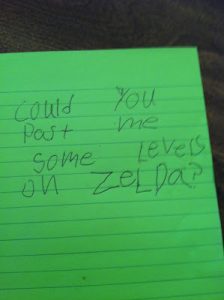 could You
Past me
some Levels
on ZeLDa?